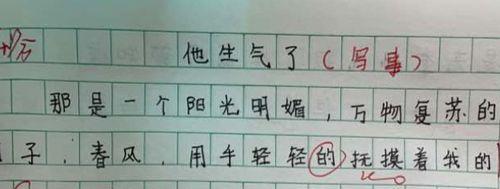 他生气了(写事)
那是一个阳光明媚,万物复苏的
子,春风,用手轻轻的抚摸着我的